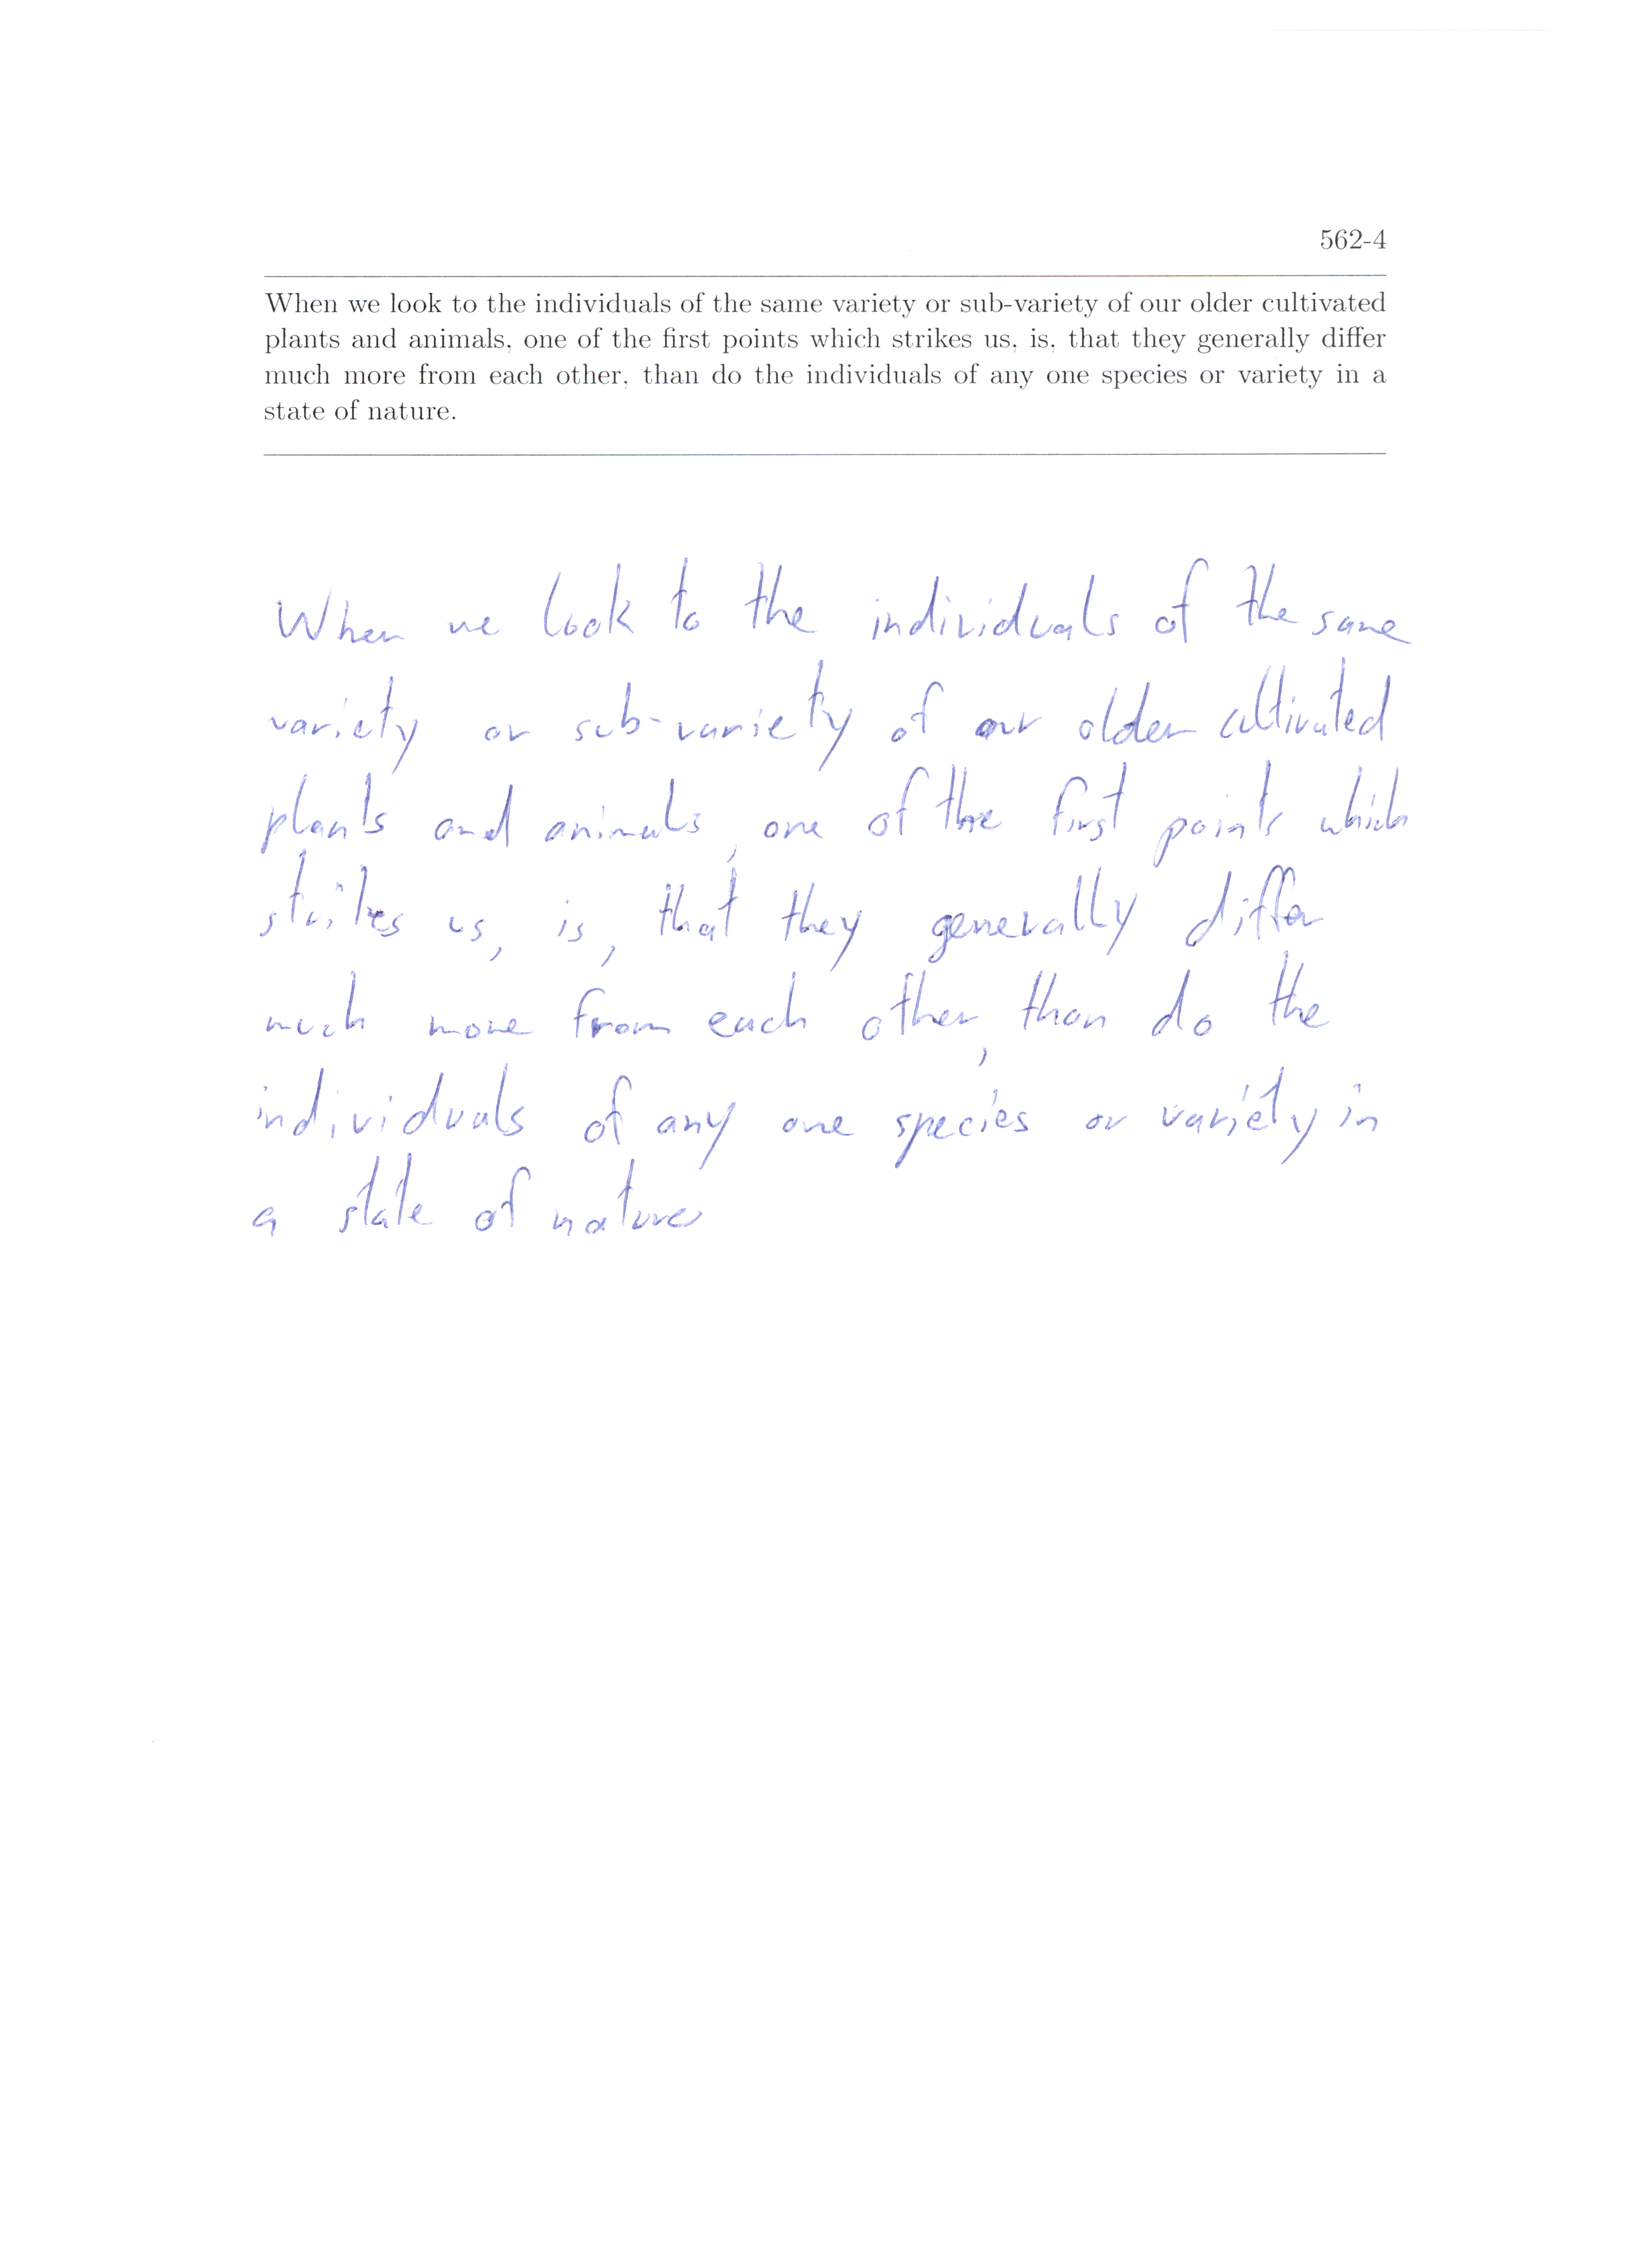 562-4
When we look to the individuals of the same variety or sub-variety of our older cultivated
plants and animals, one of the first points which strikes us, is, that they generally differ
much more from each other, than do the individuals of any one species or variety in a
state of nature.
When we look to the individuals of the same
variety or sub-variety of our older cultivated
plants and animals, one of the first points which
strikes us, is, that they generally differ
much more from each other, than do the
individuals of any one species or variety in
a state of nature